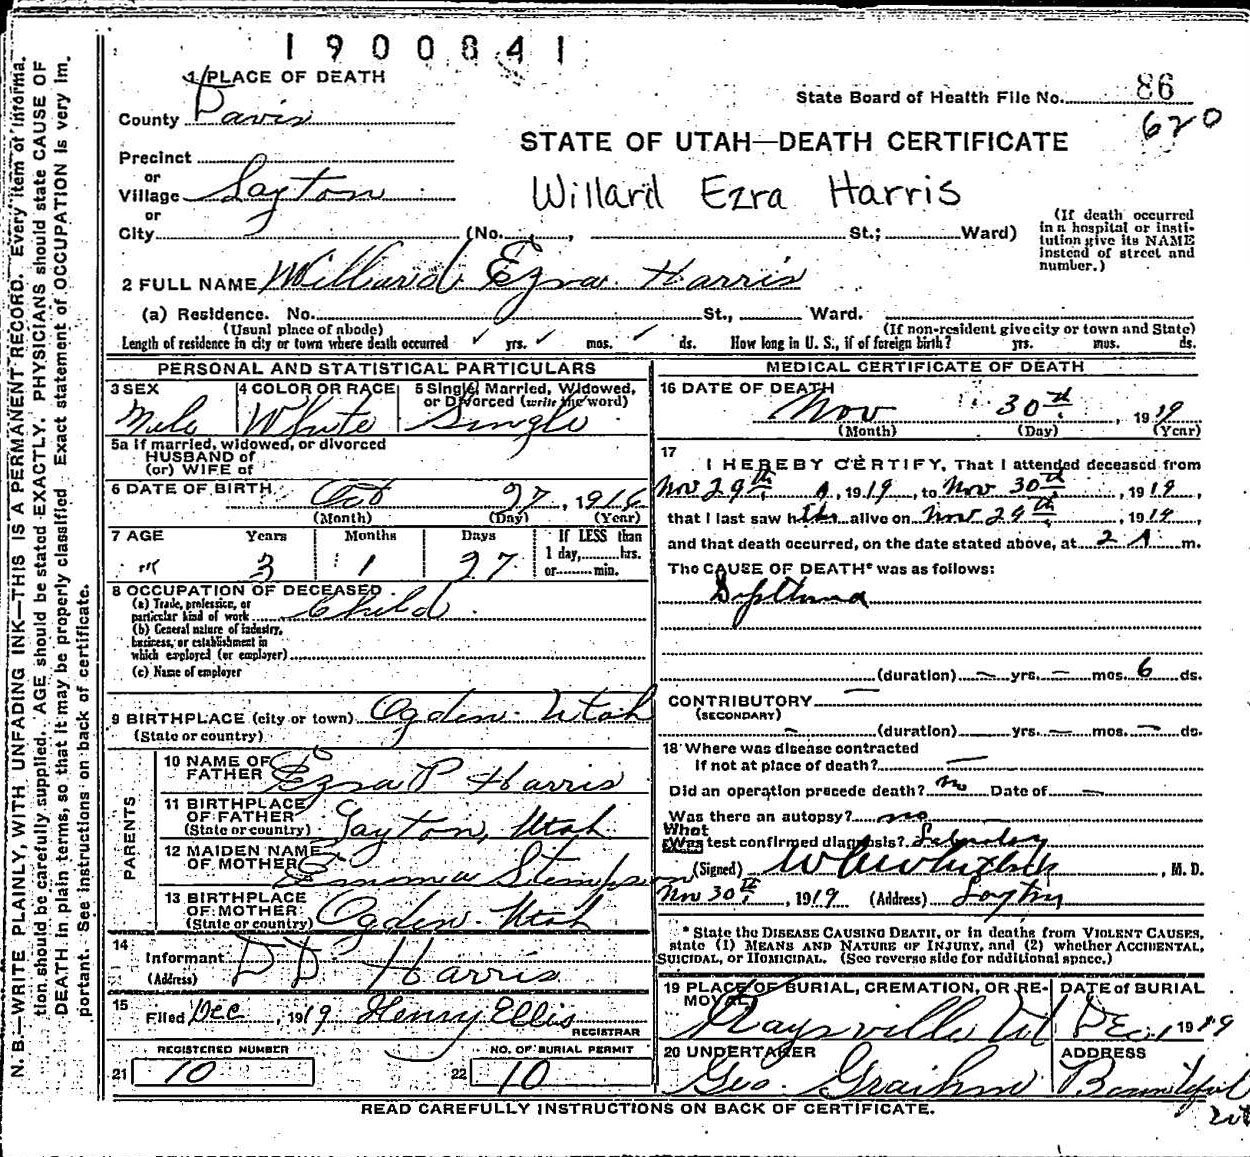 1900841
1 PLACE OF DEATH
State Board of Health File No. 86
620
County Davis
STATE OF UTAH—DEATH CERTIFICATE
Precinct
or
Village Layton
Willard Ezra Harris
or
City (No. , St.; Ward)
(If death occurred
in a hospital or insti-
tution give its NAME
instead of street and
number.)
2 FULL NAME Willard Ezra Harris
(a) Residence. No. St., Ward.
(Usual place of abode) (If non-resident give city or town and State)
Length of residence in city or town where death occurred yrs. mos. ds. How long in U. S., if of foreign birth? yrs. mos. ds.
PERSONAL AND STATISTICAL PARTICULARS
3 SEX 4 COLOR OR RACE 5 Single, Married, Widowed,
or Divorced (write the word)
Male White Single
5a If married, widowed, or divorced
HUSBAND of
(or) WIFE of
6 DATE OF BIRTH Oct 27, 1916
(Month) (Day) (Year)
7 AGE Years Months Days If LESS than
1 day, hrs.
or min.
3 1 27
8 OCCUPATION OF DECEASED
(a) Trade, profession, or
particular kind of work Child
(b) General nature of industry,
business, or establishment in
which employed (or employer)
(c) Name of employer
9 BIRTHPLACE (city or town) Ogden Utah
(State or country)
PARENTS
10 NAME OF
FATHER Ezra P Harris
11 BIRTHPLACE
OF FATHER
(State or country) Layton, Utah
12 MAIDEN NAME
OF MOTHER Emma Stimpson
13 BIRTHPLACE
OF MOTHER
(State or country) Ogden Utah
14
Informant D D Harris
(Address)
15
Filed Dec , 1919 Henry Ellis
REGISTRAR
REGISTERED NUMBER NO. OF BURIAL PERMIT
21 10 22 10
MEDICAL CERTIFICATE OF DEATH
16 DATE OF DEATH
Nov 30th, 1919
(Month) (Day) (Year)
17
I HEREBY CERTIFY, That I attended deceased from
Nov 29th, 1919, to Nov 30th, 1919,
that I last saw h alive on Nov 29th, 1919,
and that death occurred, on the date stated above, at 2 A m.
The CAUSE OF DEATH* was as follows:
Diptheria
(duration) — yrs. — mos. 6 ds.
CONTRIBUTORY —
(SECONDARY)
(duration) — yrs. — mos. — ds.
18 Where was disease contracted
if not at place of death? —
Did an operation precede death? no Date of —
Was there an autopsy? no
What
Was test confirmed diagnosis? Laboratory
(Signed) , M. D.
Nov 30th, 1919 (Address) Layton
* State the DISEASE CAUSING DEATH, or in deaths from VIOLENT CAUSES,
state (1) MEANS AND NATURE OF INJURY, and (2) whether ACCIDENTAL,
SUICIDAL, or HOMICIDAL. (See reverse side for additional space.)
19 PLACE OF BURIAL, CREMATION, OR RE-
MOVAL
DATE of BURIAL
Kaysville Ut Dec 1 1919
20 UNDERTAKER ADDRESS
Geo. Graihm Bountiful
READ CAREFULLY INSTRUCTIONS ON BACK OF CERTIFICATE.
N. B.—WRITE PLAINLY, WITH UNFADING INK—THIS IS A PERMANENT RECORD. Every item of informa-
tion should be carefully supplied. AGE should be stated EXACTLY. PHYSICIANS should state CAUSE OF
DEATH in plain terms, so that it may be properly classified. Exact statement of OCCUPATION is very im-
portant. See instructions on back of certificate.